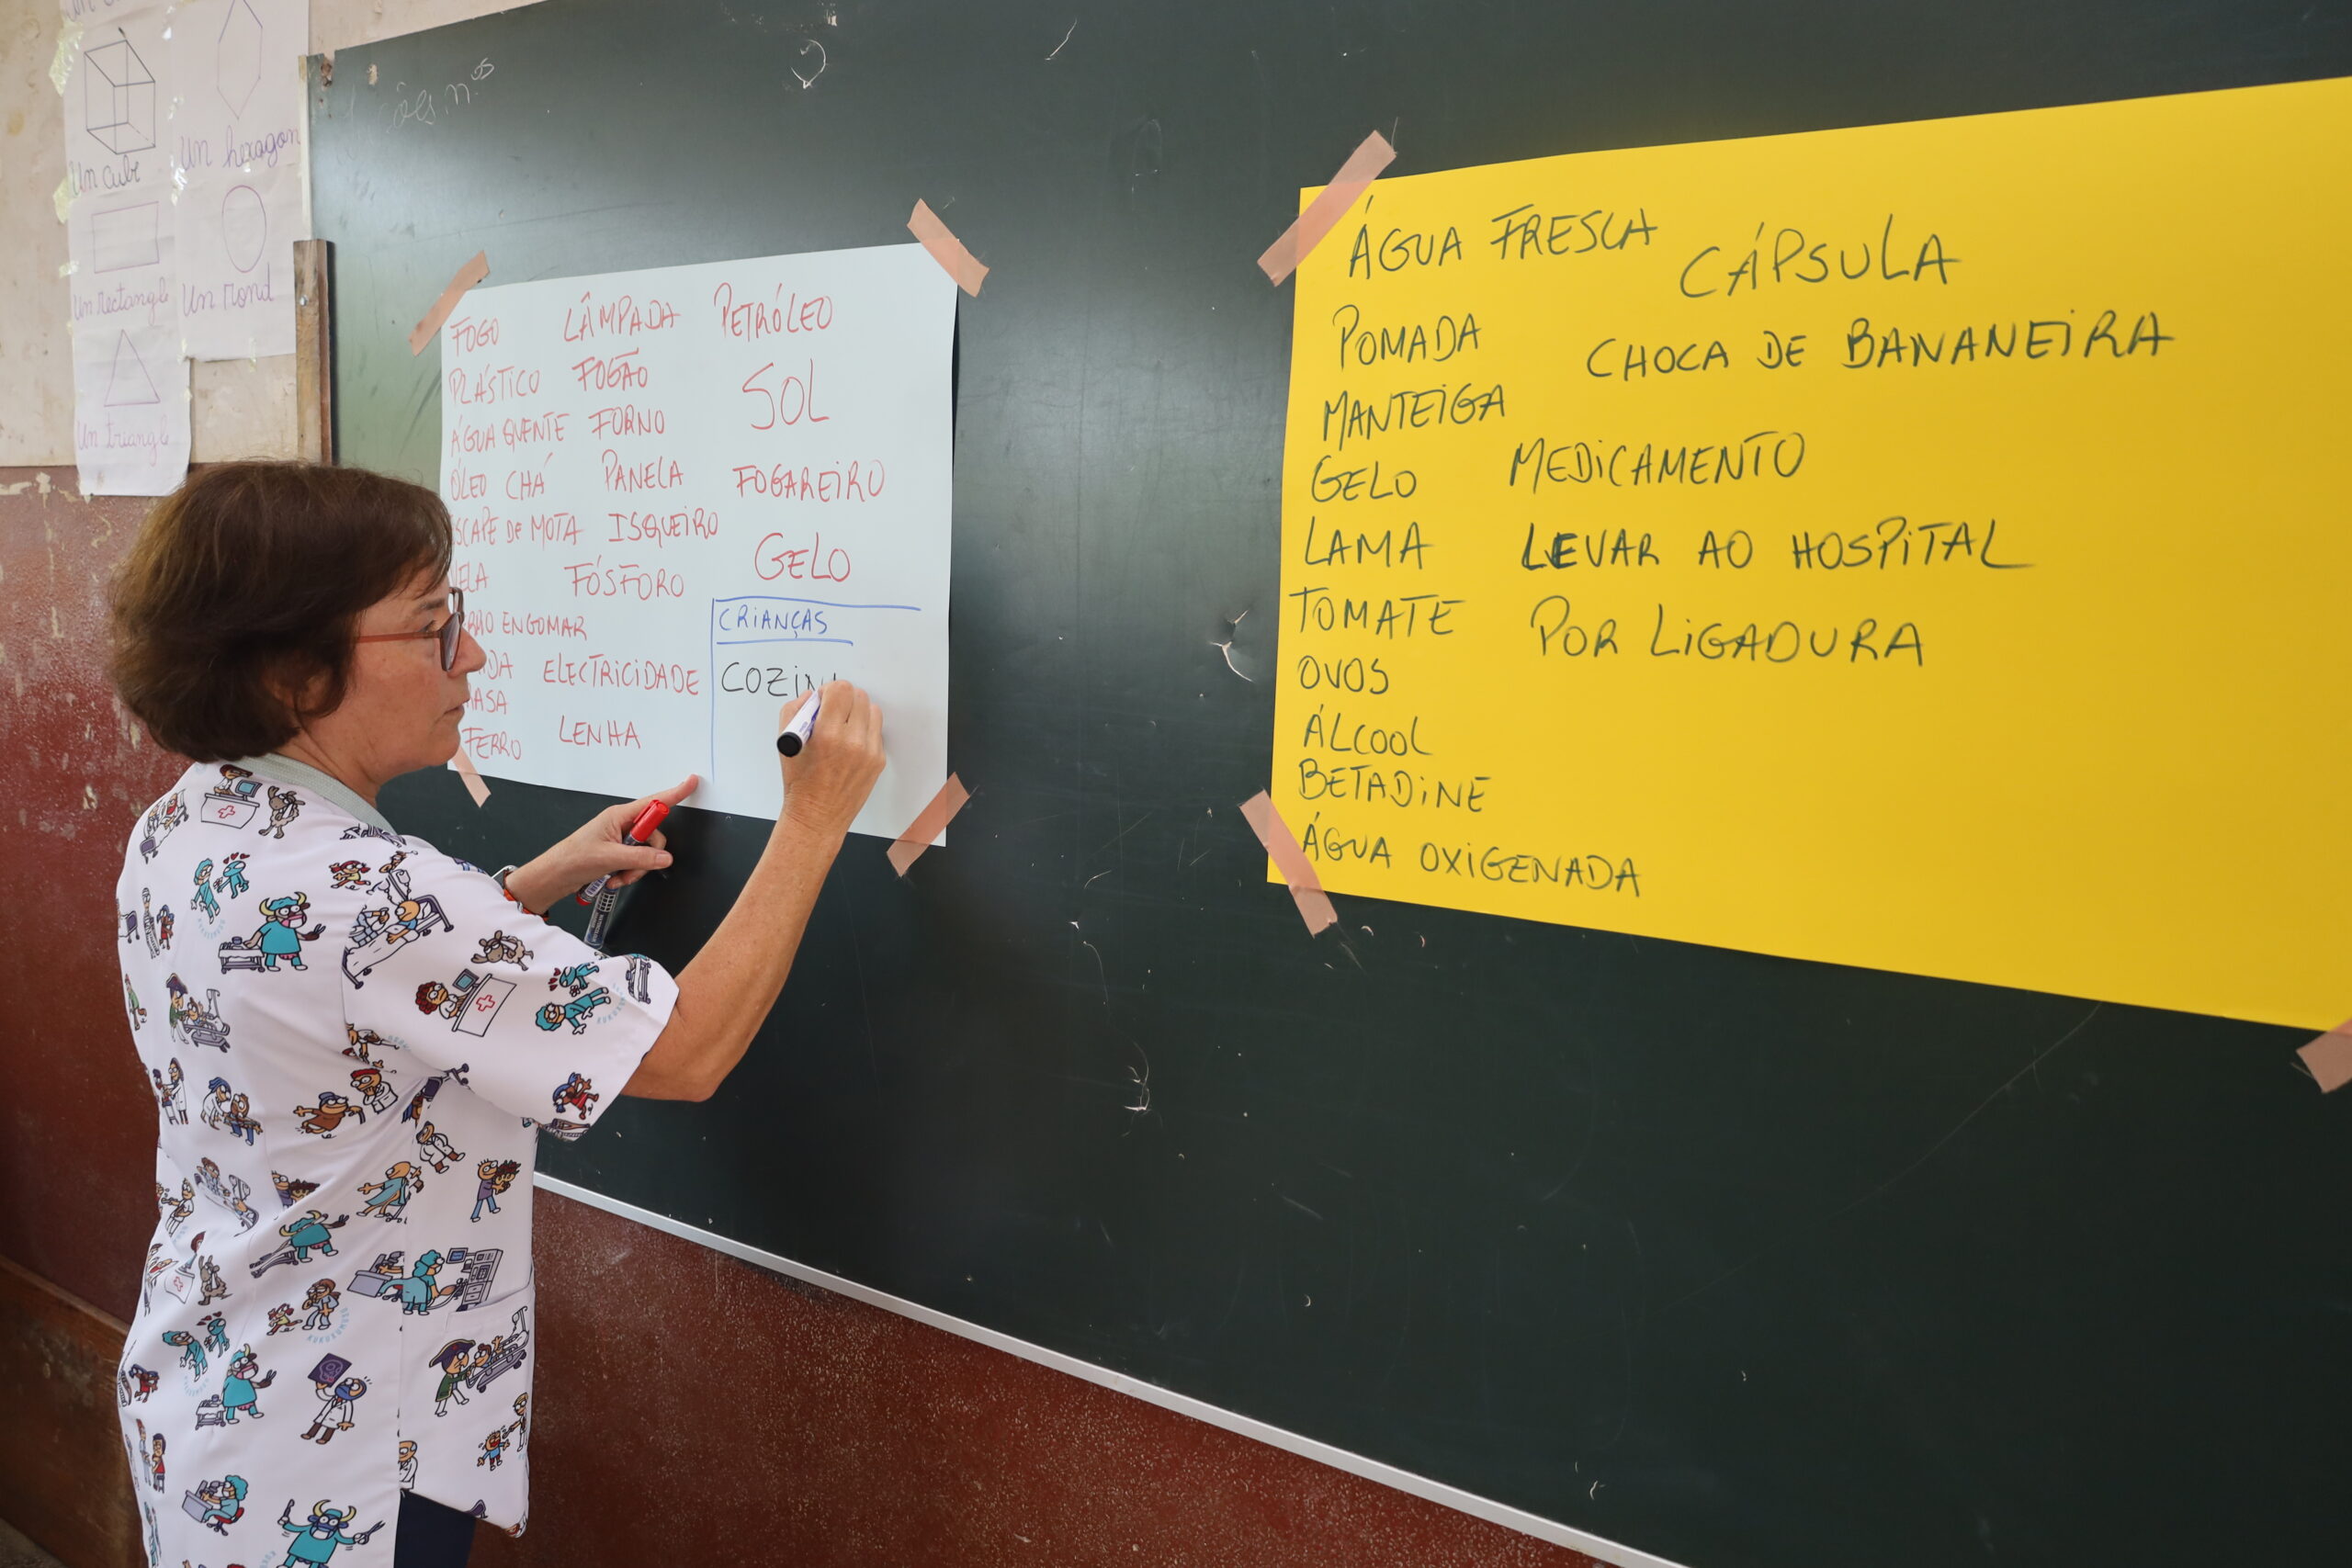 Un cube
Un hexagon
Un rectangle
Un rond
Un triangle
FOGO LÂMPADA PETRÓLEO
PLÁSTICO FOGÃO SOL
ÁGUA QUENTE FORNO
ÓLEO CHÁ PANELA FOGAREIRO
SCAPE DE MOTA ISQUEIRO
GELO
ELA FÓSFORO
RRO ENGOMAR
ELECTRICIDADE
ASA
FERRO LENHA
CRIANÇAS
COZIN
ÁGUA FRESCA CÁPSULA
POMADA CHOCA DE BANANEIRA
MANTEIGA
GELO MEDICAMENTO
LAMA LEVAR AO HOSPITAL
TOMATE POR LIGADURA
OVOS
ÁLCOOL
BETADINE
ÁGUA OXIGENADA